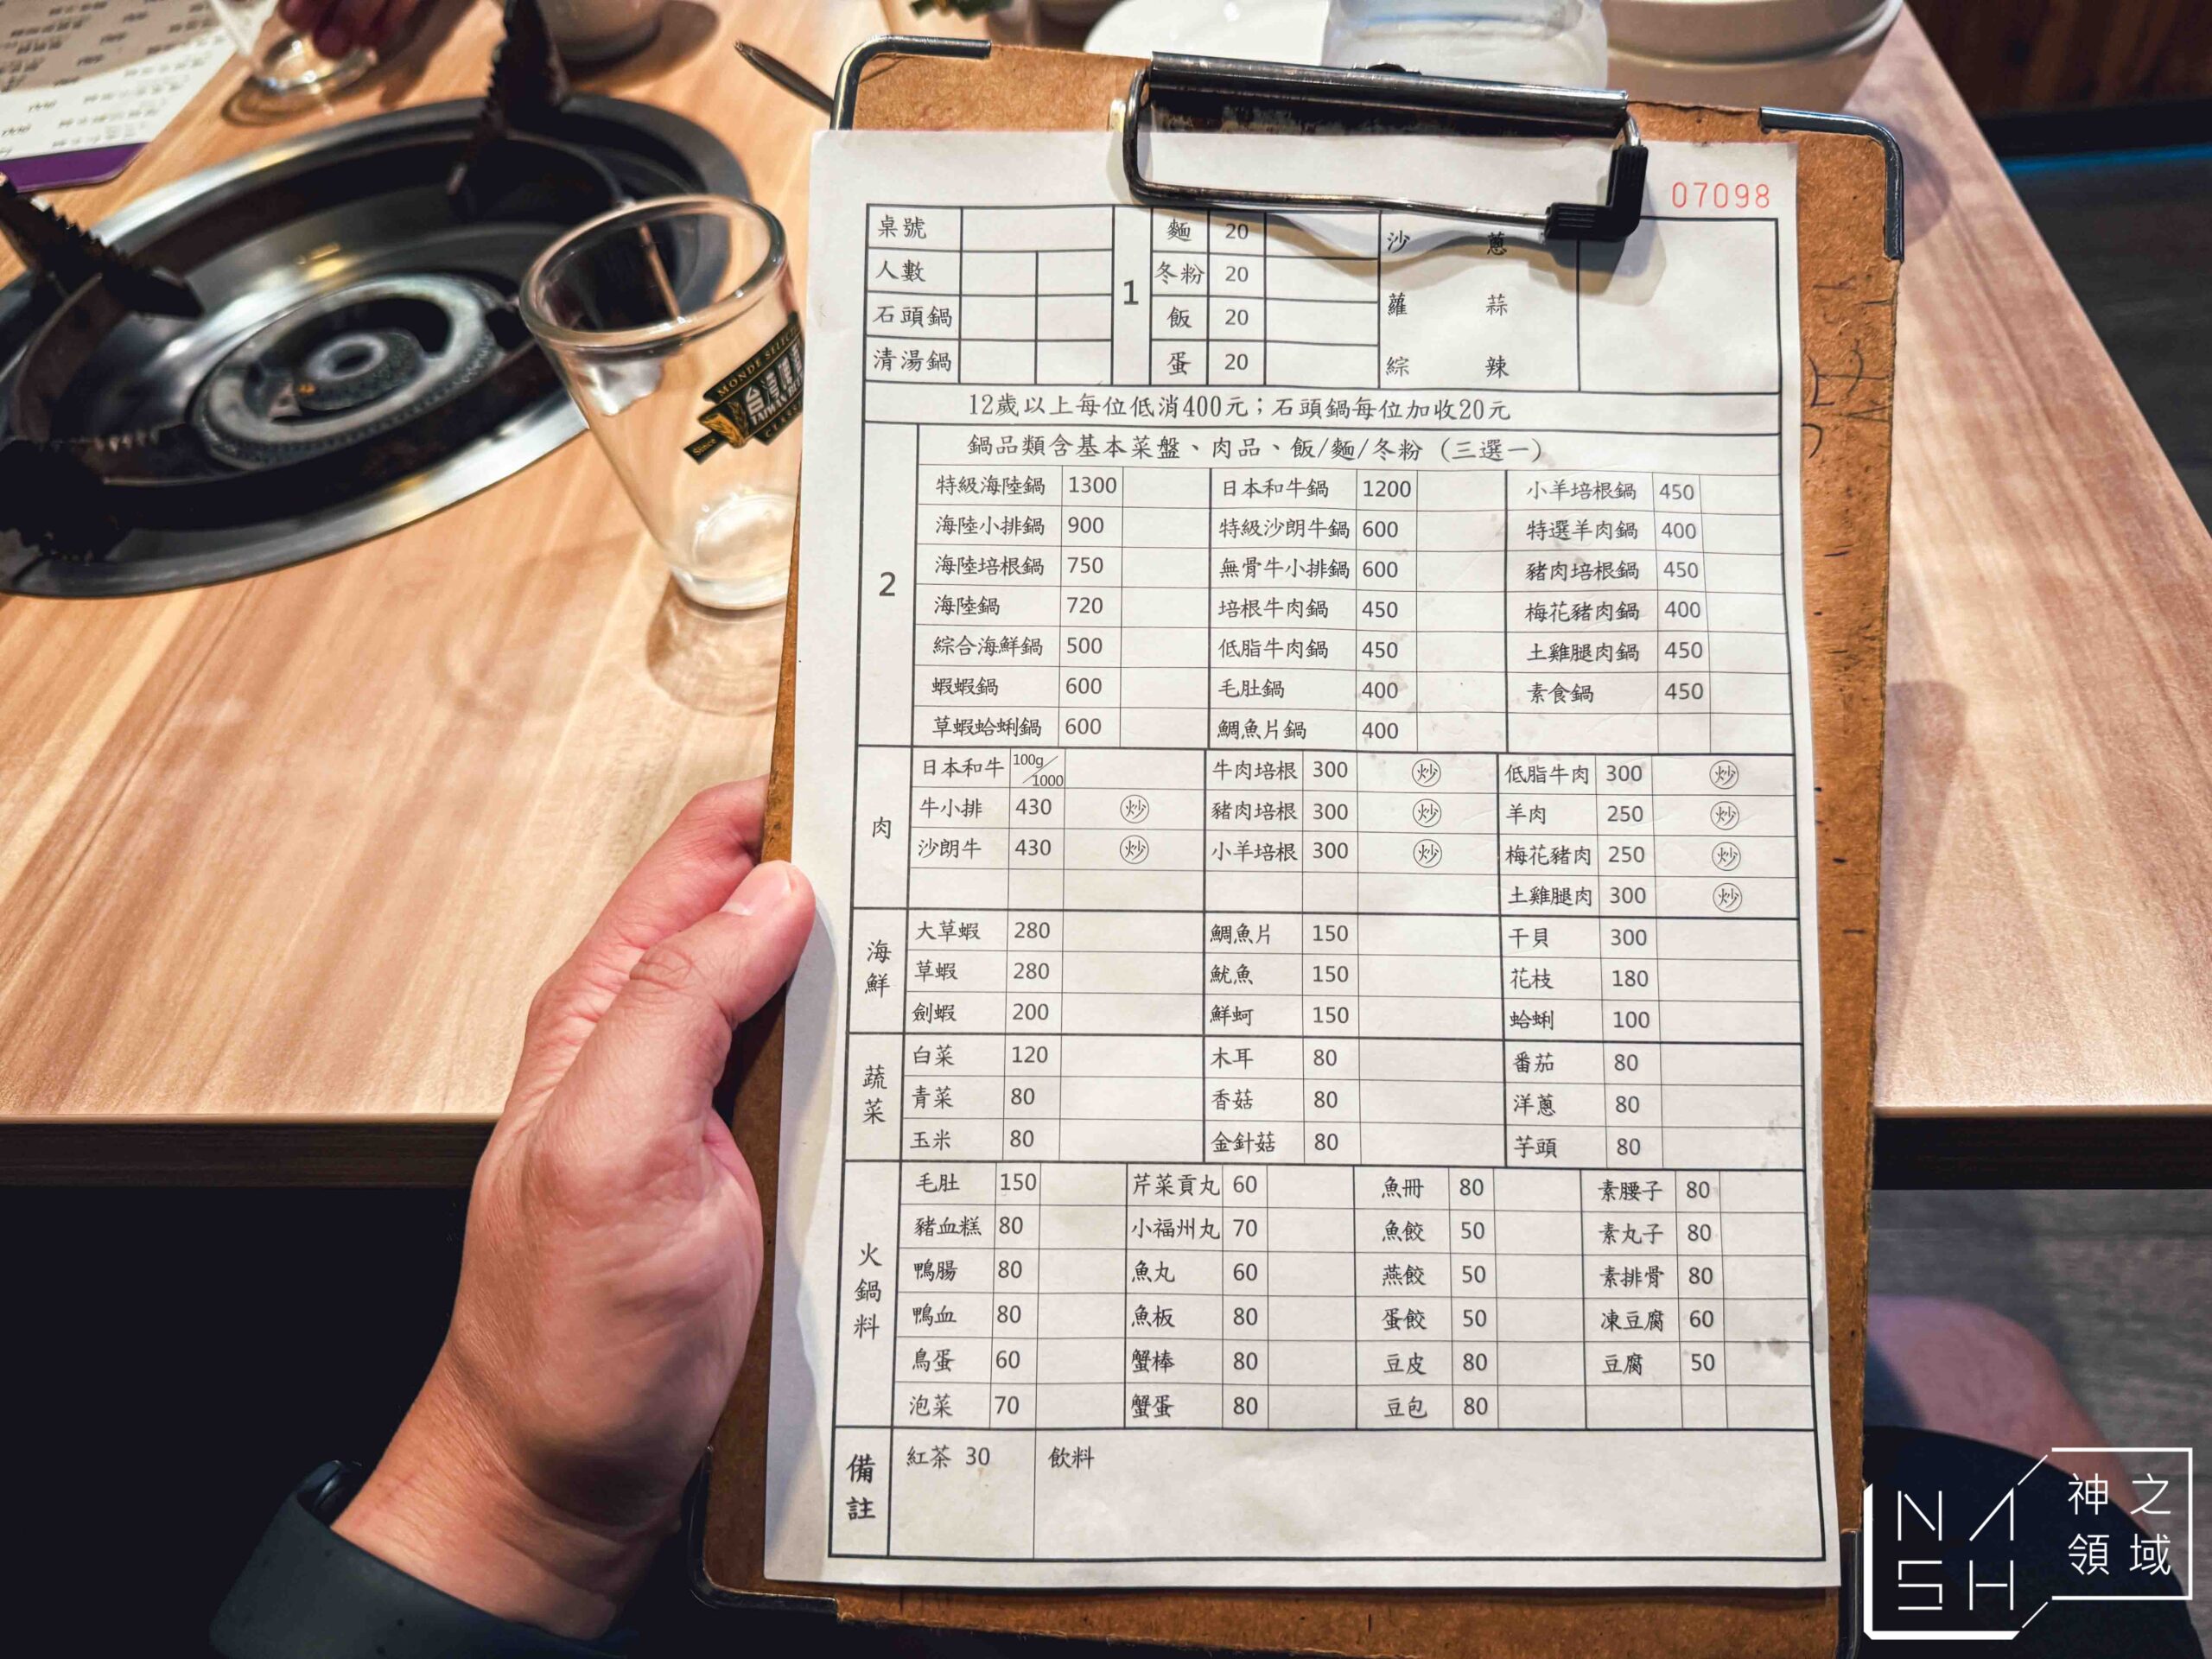 07098
桌號 1 麵 20 沙 蔥
人數 冬粉 20
石頭鍋 飯 20 蘿 蒜
清湯鍋 蛋 20 綜 辣
12歲以上每位低消400元；石頭鍋每位加收20元
2 鍋品類含基本菜盤、肉品、飯/麵/冬粉 (三選一)
特級海陸鍋 1300 日本和牛鍋 1200 小羊培根鍋 450
海陸小排鍋 900 特級沙朗牛鍋 600 特選羊肉鍋 400
海陸培根鍋 750 無骨牛小排鍋 600 豬肉培根鍋 450
海陸鍋 720 培根牛肉鍋 450 梅花豬肉鍋 400
綜合海鮮鍋 500 低脂牛肉鍋 450 土雞腿肉鍋 450
蝦蝦鍋 600 毛肚鍋 400 素食鍋 450
草蝦蛤蜊鍋 600 鯛魚片鍋 400
肉
日本和牛 100g/1000 牛肉培根 300 炒 低脂牛肉 300 炒
牛小排 430 炒 豬肉培根 300 炒 羊肉 250 炒
沙朗牛 430 炒 小羊培根 300 炒 梅花豬肉 250 炒
土雞腿肉 300 炒
海鮮
大草蝦 280 鯛魚片 150 干貝 300
草蝦 280 魷魚 150 花枝 180
劍蝦 200 鮮蚵 150 蛤蜊 100
蔬菜
白菜 120 木耳 80 番茄 80
青菜 80 香菇 80 洋蔥 80
玉米 80 金針菇 80 芋頭 80
火鍋料
毛肚 150 芹菜貢丸 60 魚冊 80 素腰子 80
豬血糕 80 小福州丸 70 魚餃 50 素丸子 80
鴨腸 80 魚丸 60 燕餃 50 素排骨 80
鴨血 80 魚板 80 蛋餃 50 凍豆腐 60
鳥蛋 60 蟹棒 80 豆皮 80 豆腐 50
泡菜 70 蟹蛋 80 豆包 80
備註
紅茶 30 飲料
MONDE SELECTI
Since
NASH
神之
領域